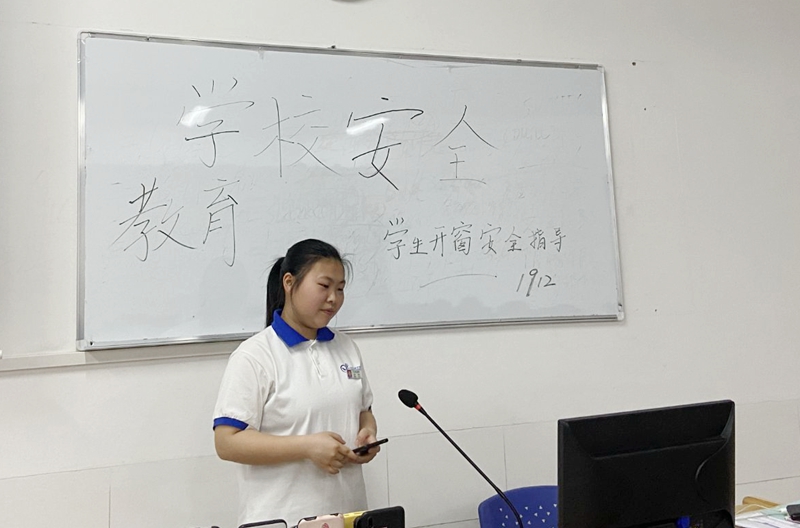 学校安全
教育
学生开窗安全指导
1912